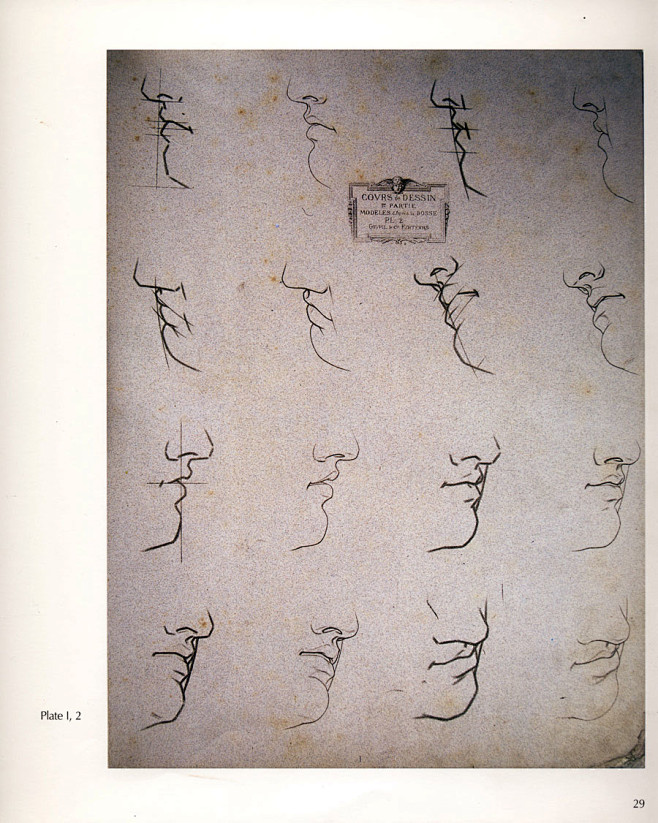 COVRS de DESSIN
PARTIE
MODELES d'Après la BOSSE
PL. 2
GOUPIL & Cie EDITEURS
Plate I, 2
29